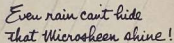 Even rain can't hide
that Microsheen shine!